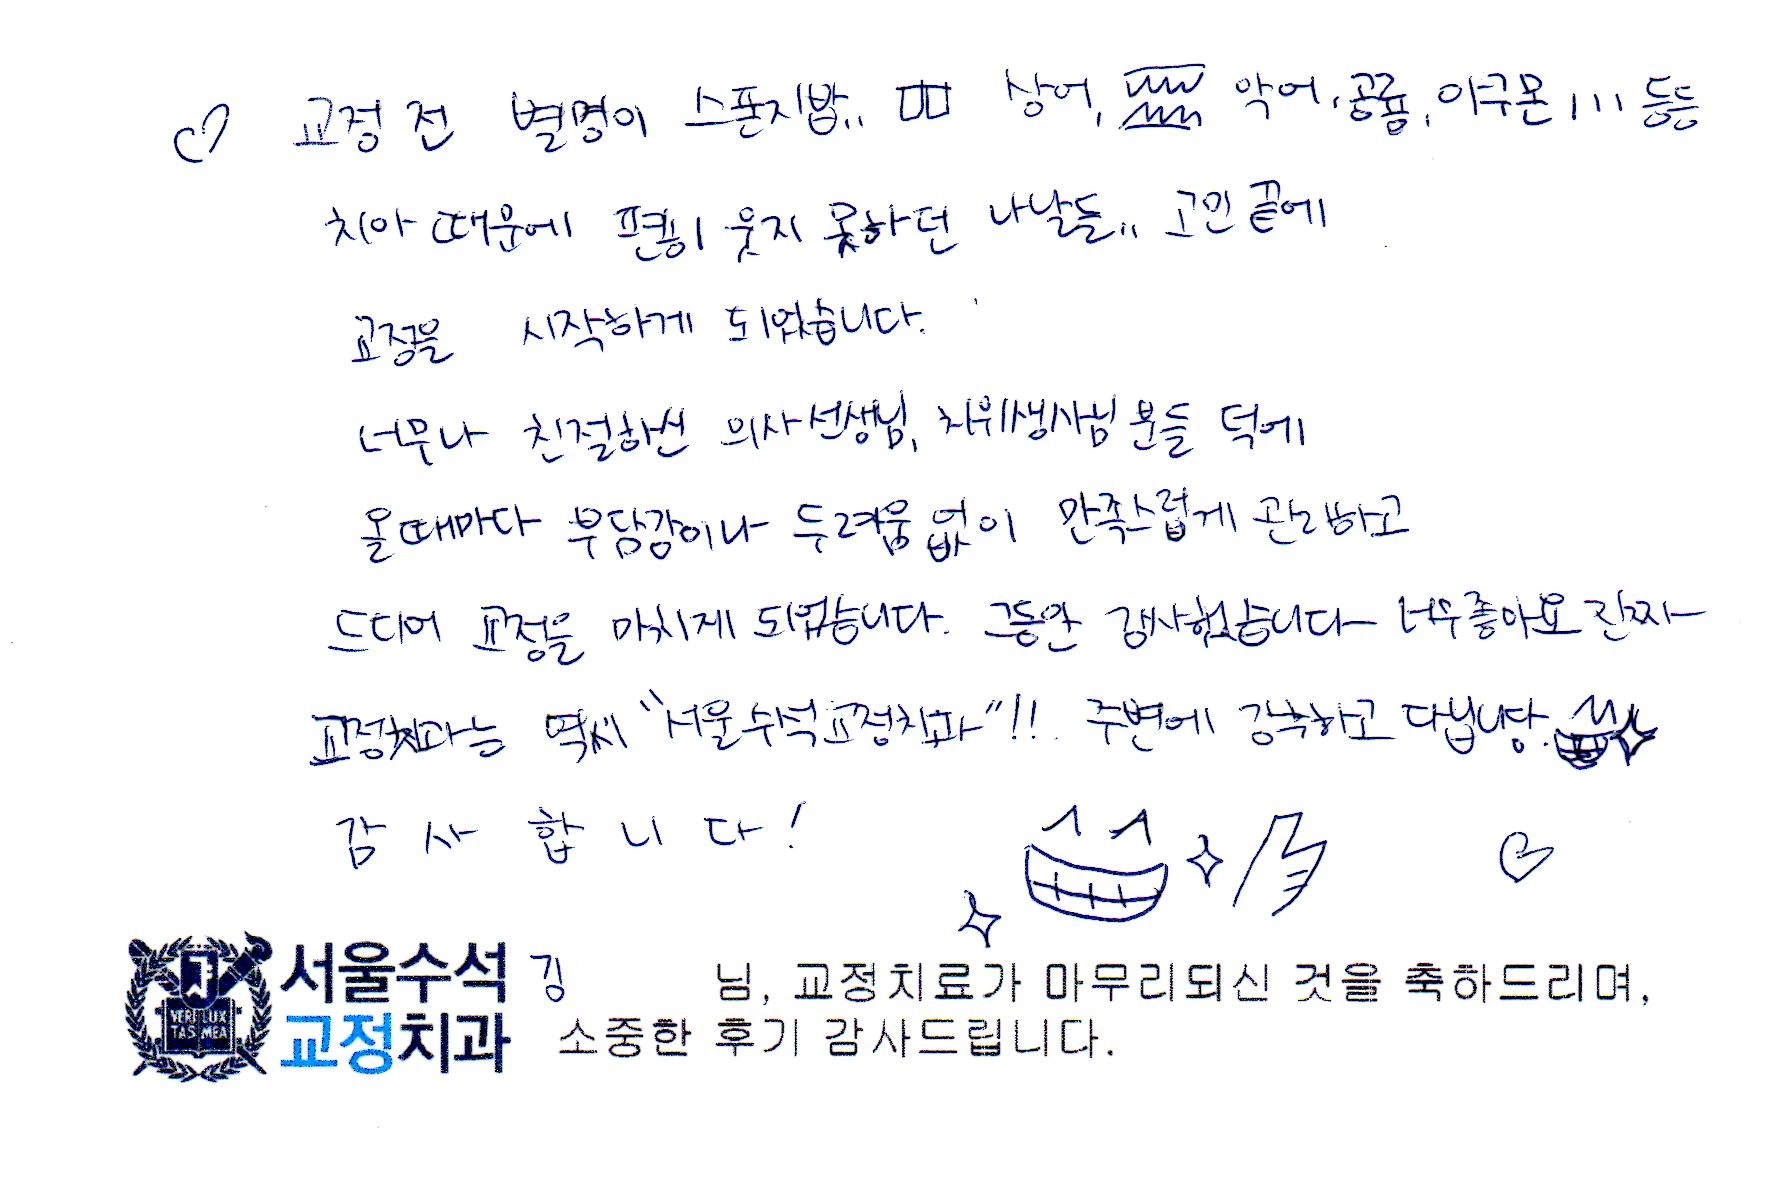 교정 전 별명이 스폰지밥.. 상어, 악어, 공룡, 아구몬... 등등
치아 때문에 편히 웃지 못하던 나날들.. 고민 끝에
교정을 시작하게 되었습니다.
너무나 친절하신 의사선생님, 치위생사님 분들 덕에
올때마다 부담감이나 두려움 없이 만족스럽게 관리하고
드디어 교정을 마치게 되었습니다. 그동안 감사했습니다 너무좋아요 진짜
교정치과는 역씨 "서울수석교정치과"!! 주변에 강추하고 다닙니당.
감사합니다!
서울수석
교정치과
VERI LUX
TAS MEA
김 님, 교정치료가 마무리되신 것을 축하드리며,
소중한 후기 감사드립니다.